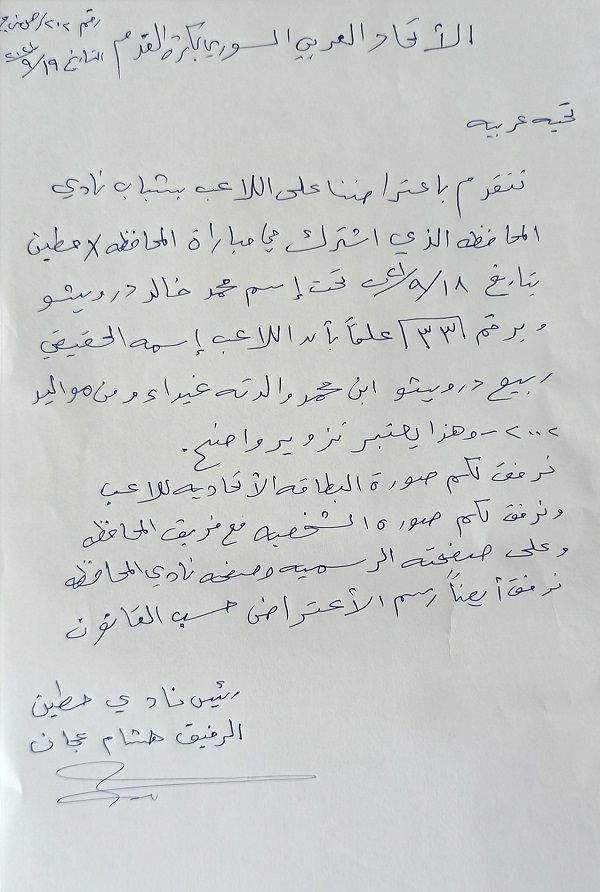 رقم ٢٠٢/ص.ن.ح
الأتحاد العربي السوري بكرة القدم التاريخ ٩/١٩
تحيه عربيه
نتقدم باعتراضنا على اللاعب بشباب نادي
المحافظه الذي اشترك في مباراة المحافظه لا حطين
بتاريخ ٩/١٨ تحت إسم محمد خالد درويشو
وبرقم ٣٣ علماً بأن اللاعب إسمه الحقيقي
ربيع درويشو ابن محمد والدته غيداء ومن مواليد
٢٠٠٢ - وهذا يعتبر تزوير واضح.
نرفق لكم صورة البطاقه الأتحاديه للاعب
ونرفق لكم صوره الشخصيه مع فريق المحافظه
وعلى صفحته الرسميه وصفحه نادي المحافظه
نرفق أيضاً رسم الأعتراض حسب القانون
رئيس نادي حطين
الرفيق هشام عجان